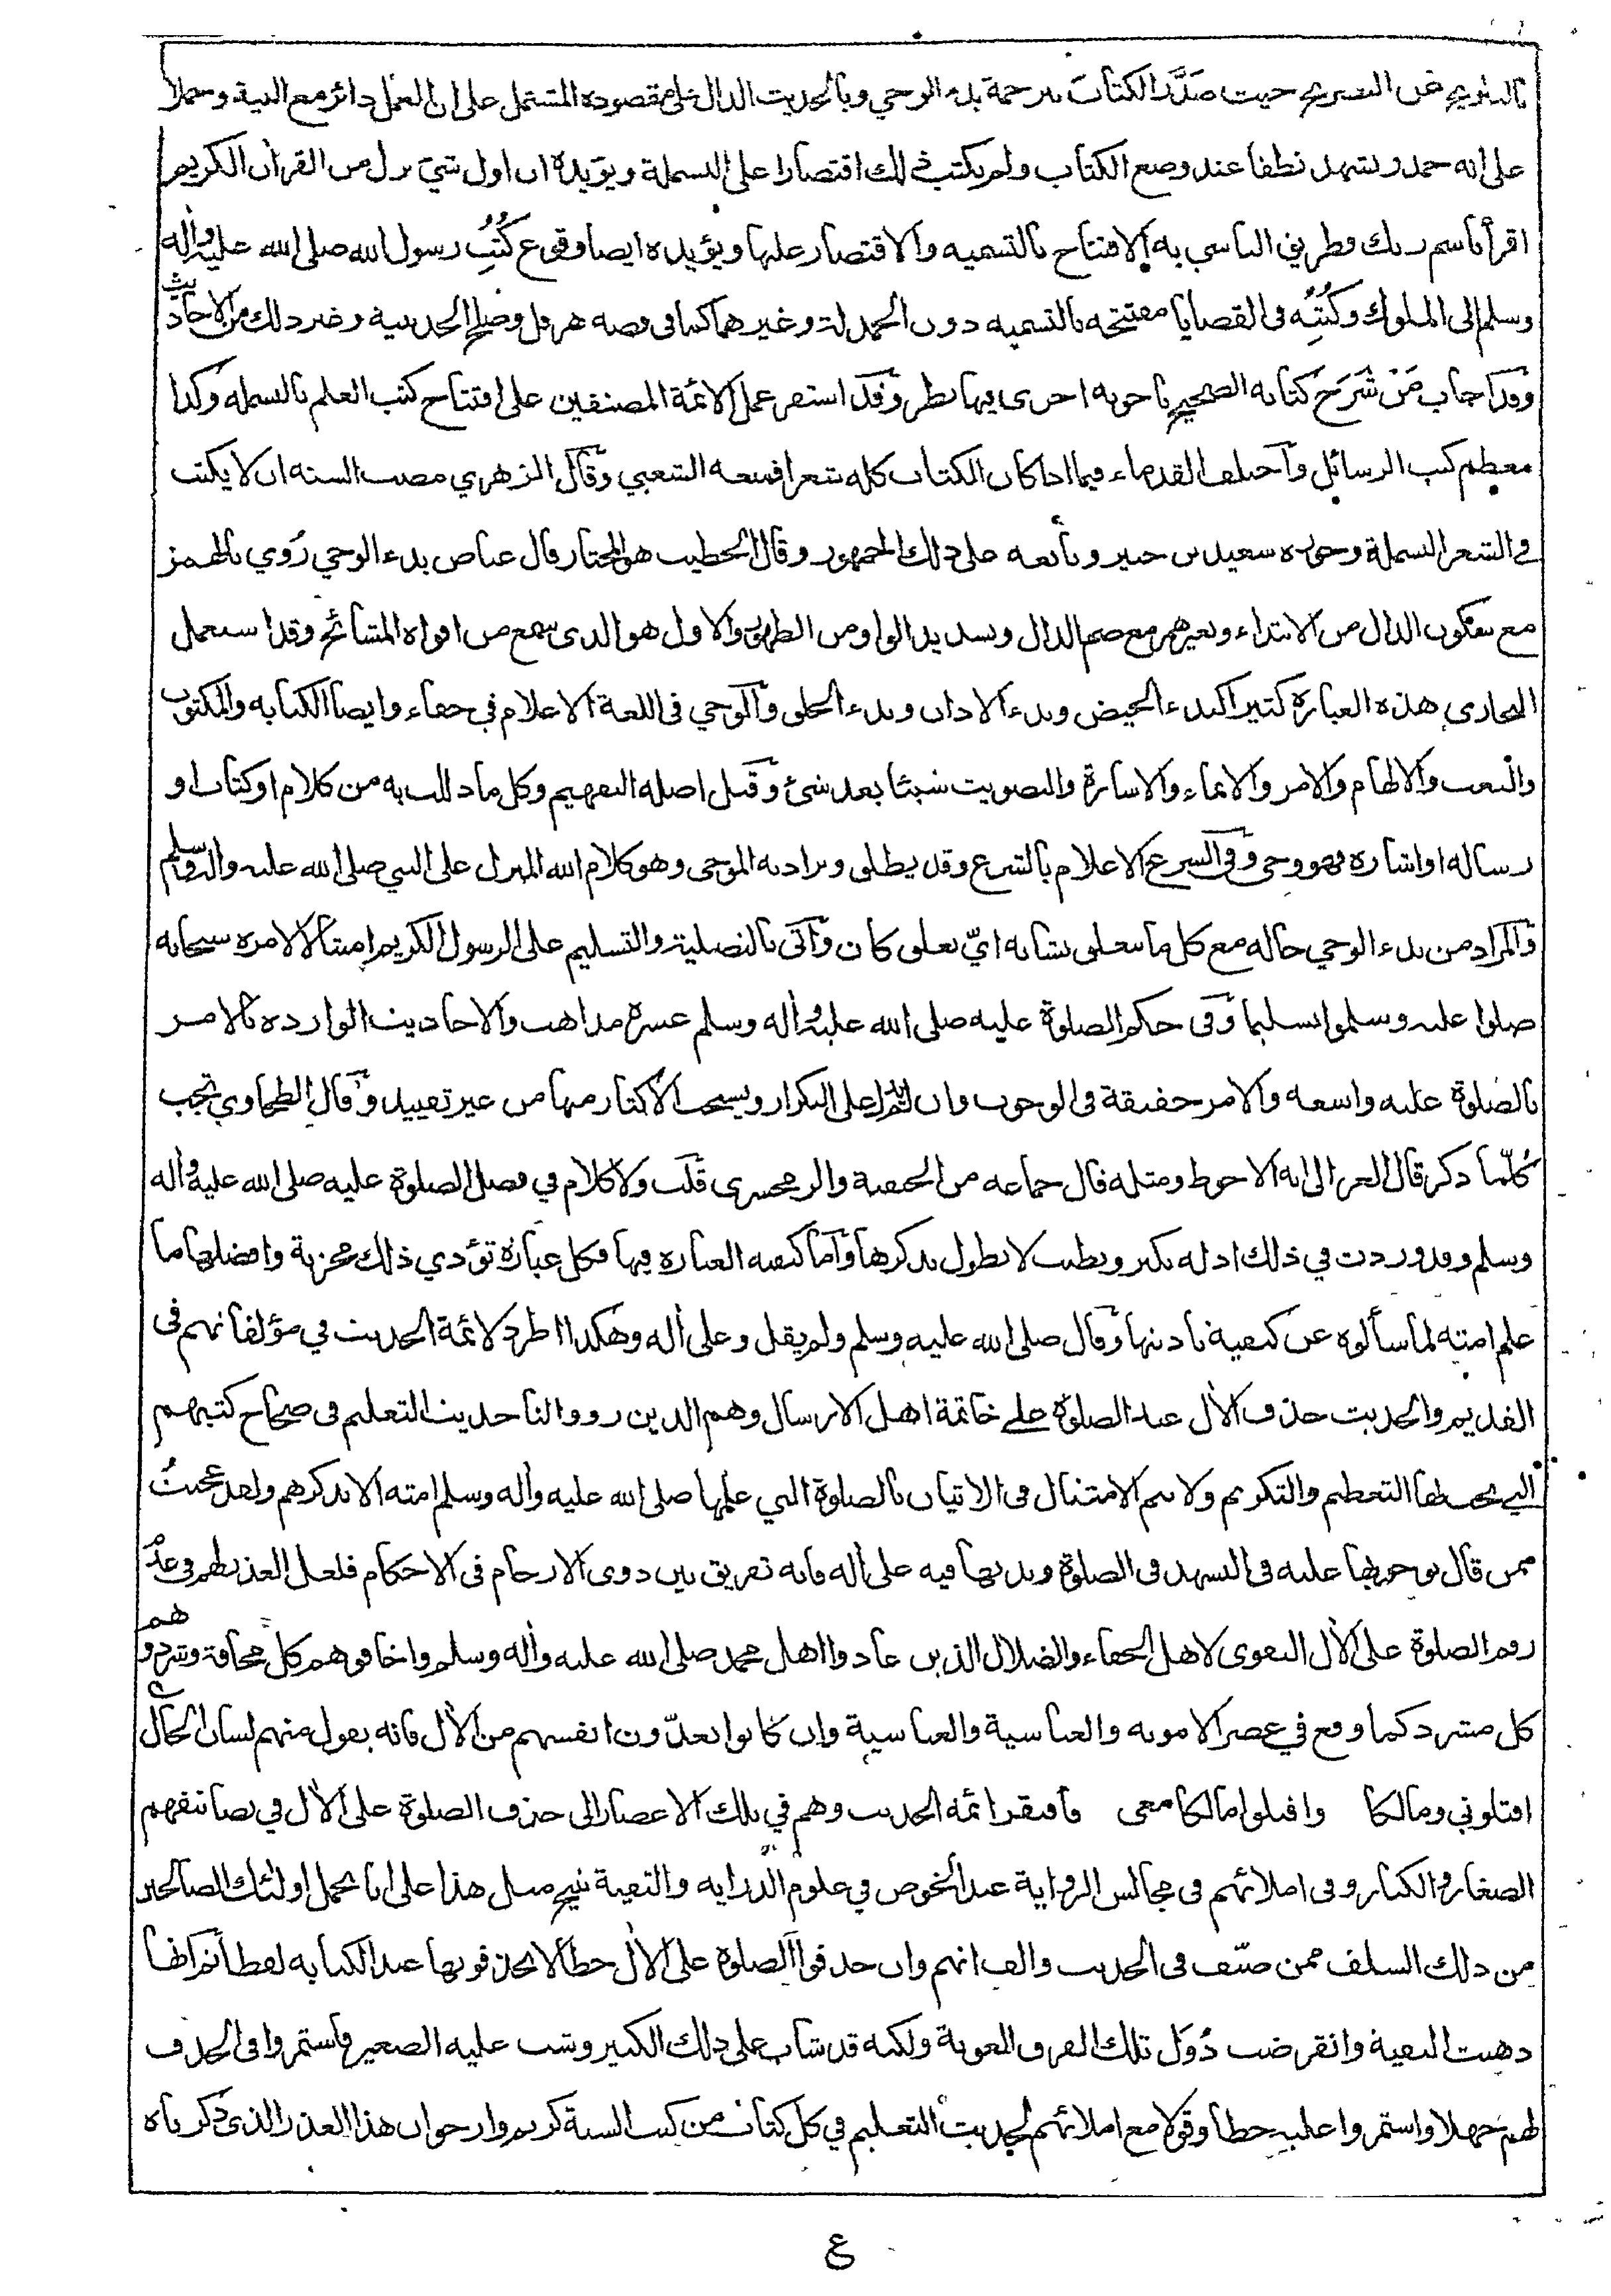 بالتلويح عن التصريح حيث صَدَّرَ الكتابَ بترجمة بدء الوحي وبالحديث الدال على مقصوده المشتمل على ان العمل دائر مع النية وحملا
على انه حمد وتشهد نطقا عند وضع الكتاب ولم يكتب ذلك اقتصارا على البسملة ويؤيده ان اول شيء نزل من القرآن الكريم
اقرأ باسم ربك فطريق التأسي به الافتتاح بالتسميه والاقتصار عليها ويؤيده ايضا وقوع كُتُبِ رسول الله صلى الله عليه وآله
وسلم الى الملوك وكُتُبِه في القضايا مفتتحه بالتسميه دون الحمدلة وغيرهما كما في قصه هرقل وصلح الحديبية وغير ذلك من الاحاديث
وقد اجاب مَنْ شَرَحَ كتابه الصحيح باجوبه اخرى فيها نظر وقد استقر عمل الائمة المصنفين على افتتاح كتب العلم بالبسمله وكذا
معظم كتب الرسائل واختلف القدماء فيما اذا كان الكتاب كله شعرا فمنعه الشعبي وقال الزهري مضت السنه ان لا يكتب
في الشعر البسملة وجوزه سعيد بن جبير وتابعه على ذلك الجمهور وقال الخطيب هو المختار قال عياض بدء الوحي رُوي بالهمز
مع سكون الدال من الابتداء وبغيرهمز مع ضم الدال وتشديد الواو من الظهور والاول هو الذي سمع من افواه المشائخ وقد استعمل
البخاري هذه العبارة كثيرا كبدء الحيض وبدء الاذان وبدء الخلق والوحي في اللغة الاعلام في خفاء وايضا الكتابه والمكتوب
والبعث والالهام والامر والايماء والاشارة والتصويت شيئا بعد شئ وقيل اصله التفهيم وكل ما دللت به من كلام او كتاب او
رساله او اشاره فهو وحي وفي الشرع الاعلام بالشرع وقد يطلق ويراد به الموحى وهو كلام الله المنزل على النبي صلى الله عليه وآله وسلم
والمراد من بدء الوحي حاله مع كل ما يتعلق بشانه ايّ تعلق كان وأتى بالتصلية والتسليم على الرسول الكريم امتثالا لامره سبحانه
صلوا عليه وسلموا تسليما وفي حكم الصلوة عليه صلى الله عليه وآله وسلم عشرة مذاهب والاحاديث الوارده بالامر
بالصلوة عليه واسعه والامر حقيقة في الوجوب وان على التكرار ويستحب الاكثار منها من غير تقييد وقال الطحاوي تجب
كُلّما ذكر قال انه الاحوط ومثله قال جماعه من الحنفية والزمخشري قلت ولا كلام في فضل الصلوة عليه صلى الله عليه وآله
وسلم وقد وردت في ذلك ادله تكثر وتطيب لا نطول بذكرها واما كيفيه العباره فيها فكل عبارة تؤدي ذلك مجزية وافضلها ما
علم امته لما سألوه عن كيفية تاديتها وقال صلى الله عليه وسلم ولم يقل وعلى آله وهكذا اطرد لائمة الحديث في مؤلفاتهم في
القديم والحديث حذف الآل عند الصلوة على خاتمة اهل الارسال وهم الذين رووا لنا حديث التعليم في صحاح كتبهم
التي لها التعظيم والتكريم ولا يتم الامتثال في الاتيان بالصلوة التي علمها صلى الله عليه وآله وسلم امته الا بذكرهم ولقد عجبتُ
ممن قال بوجوبها عليه في التشهد في الصلوة وندبها فيه على آله فانه تفريق بين ذوي الارحام في الاحكام فلعل العذر لهم في عدم
رقم الصلوة على الآل التقوى لاهل الجفاء والضلال الذين عادوا اهل محمد صلى الله عليه وآله وسلم واخافوهم كل مخافة وشردوهم
كل مشرد كما وقع في عصر الامويه والعباسية والعباسية وان كانوا يعدّون انفسهم من الآل فانه يقول منهم لسان الحال
اقتلوني ومالكا واقتلوا مالكا معي فافتقر ائمه الحديث وهم في تلك الاعصار الى حذف الصلوة على الآل في تصانيفهم
الصغار والكبار وفي املائهم في مجالس الرواية عند الخوض في علوم الدرايه والتقية تبيح مثل هذا على انا نحمل اولئك الصالحين
من ذلك السلف ممن صنّف في الحديث والف انهم وان حذفوا الصلوة على الآل خطا لا يحذفونها عند الكتابه لفظا ثم انها
ذهبت التقية وانقرضت دُوَل تلك الفرق الغوية ولكنه قد شاب على ذلك الكبير وشب عليه الصغير فاستمروا في الحذف
لهم جهلا واستمروا عليه خطا وقولا مع املائهم لحديث التعليم في كل كتاب من كتب السنة كريم وارجو ان هذا العذر الذي ذكرناه
٤